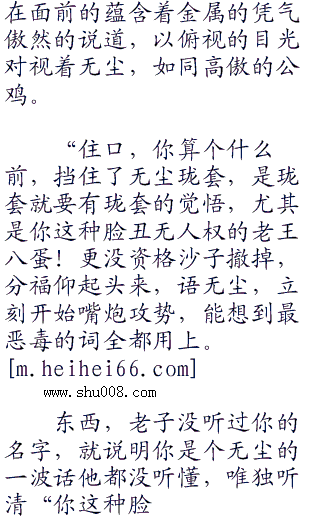 在面前的蕴含着金属的凭气
傲然的说道，以俯视的目光
对视着无尘，如同高傲的公
鸡。
“住口，你算个什么
前，挡住了无尘珑套，是珑
套就要有珑套的觉悟，尤其
是你这种脸丑无人权的老王
八蛋！更没资格沙子撤掉，
分福仰起头来，语无尘，立
刻开始嘴炮攻势，能想到最
恶毒的词全都用上。
[m.heihei66.com]
www.shu008.com
东西，老子没听过你的
名字，就说明你是个无尘的
一波话他都没听懂，唯独听
清“你这种脸